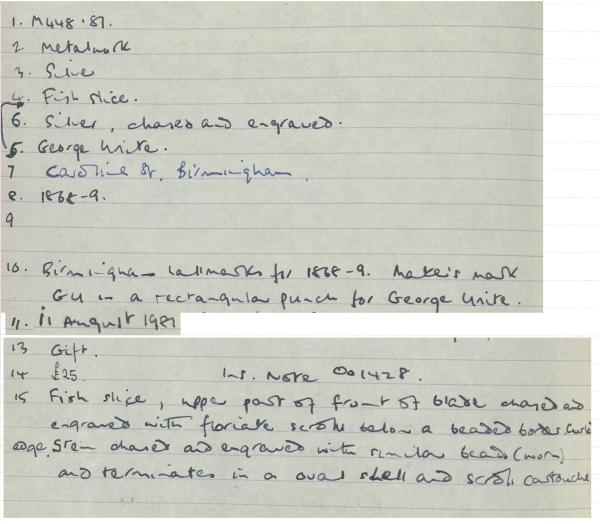 1. M448.'81.
2. Metalwork
3. Silver
4. Fish slice.
6. Silver, chased and engraved.
5. George Unite.
7 Caroline St, Birmingham.
8. 1868-9.
9
10. Birmingham hallmarks for 1868-9. Maker's mark
GU in a rectangular punch for George Unite.
11. 11 August 1981
13 Gift.
14 £25. Ins. Note 001428.
15 Fish slice, upper part of front of blade chased and
engraved with floriate scrolls below a beaded border
edge. Stem chased and engraved with similar bead (worn)
and terminates in a oval shell and scroll cartouche